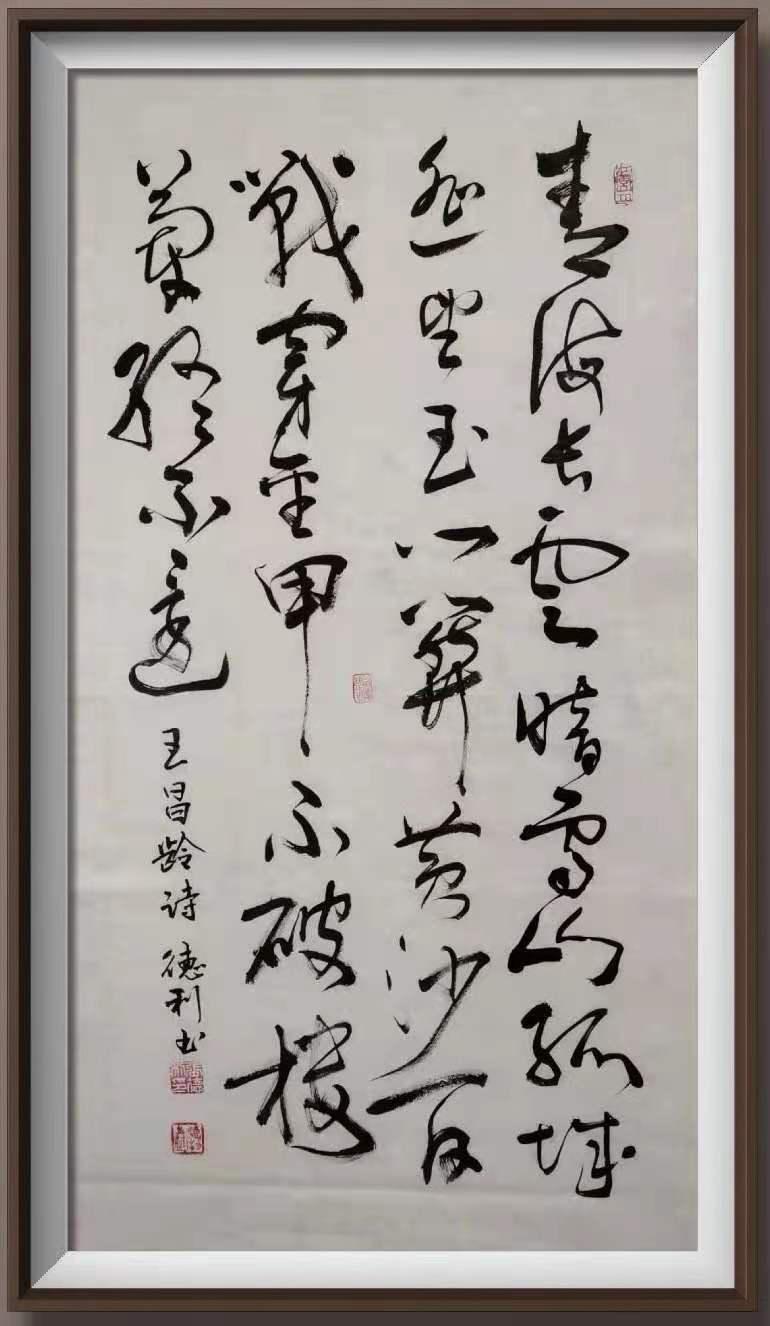 青海长雲暗雪山孤城
遥望玉门關黄沙百
戰穿金甲不破樓
蘭终不還
王昌龄诗 德利书